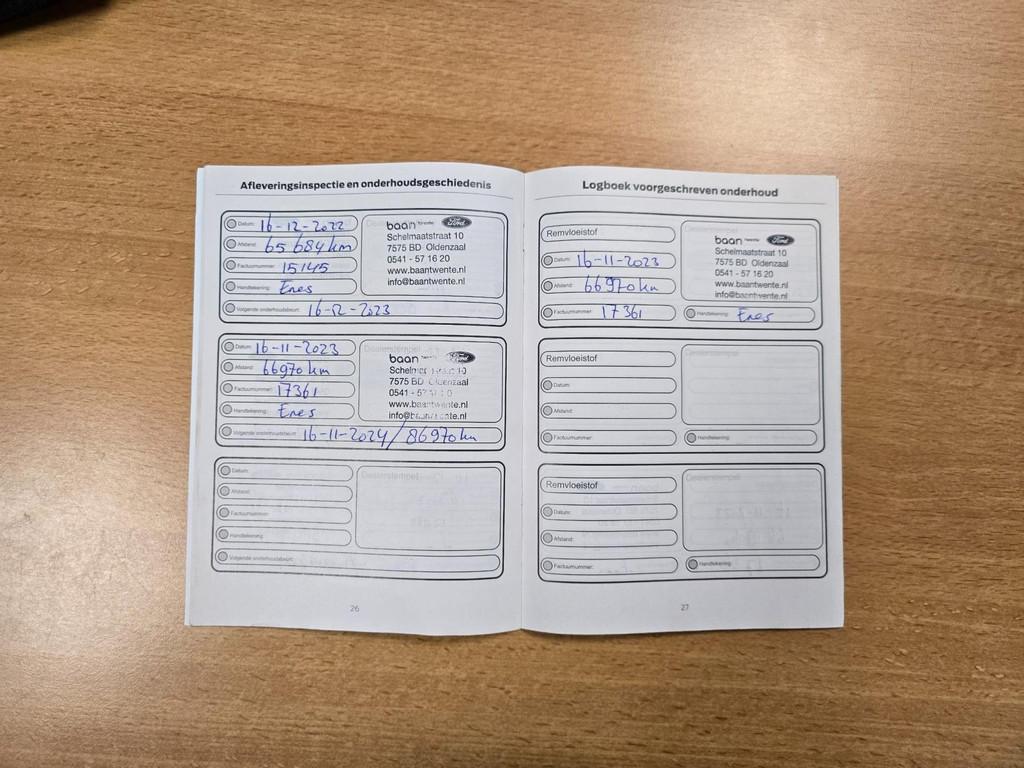 Afleveringsinspectie en onderhoudsgeschiedenis
Datum: 16-12-2022
Afstand: 65684 km
Factuurnummer: 15145
Handtekening: Enes
Volgende onderhoudsbeurt: 16-12-2023
baan twente Ford
Schelmaatstraat 10
7575 BD Oldenzaal
0541 - 57 16 20
www.baantwente.nl
info@baantwente.nl
Datum: 16-11-2023
Afstand: 66970 km
Factuurnummer: 17361
Handtekening: Enes
Volgende onderhoudsbeurt: 16-11-2024 / 86970 km
Dealerstempel
baan twente Ford
Schelmaatstraat 10
7575 BD Oldenzaal
0541 - 57
www.baantwente.nl
info@baantwente.nl
Datum:
Afstand:
Factuurnummer:
Handtekening:
Volgende onderhoudsbeurt:
Dealerstempel
26
Logboek voorgeschreven onderhoud
Remvloeistof
Datum: 16-11-2023
Afstand: 66970 km
Factuurnummer: 17361
Dealerstempel
baan twente Ford
Schelmaatstraat 10
7575 BD Oldenzaal
0541 - 57 16 20
www.baantwente.nl
info@baantwente.nl
Handtekening: Enes
Remvloeistof
Datum:
Afstand:
Factuurnummer:
Dealerstempel
Handtekening:
Remvloeistof
Datum:
Afstand:
Factuurnummer:
Dealerstempel
Handtekening:
27